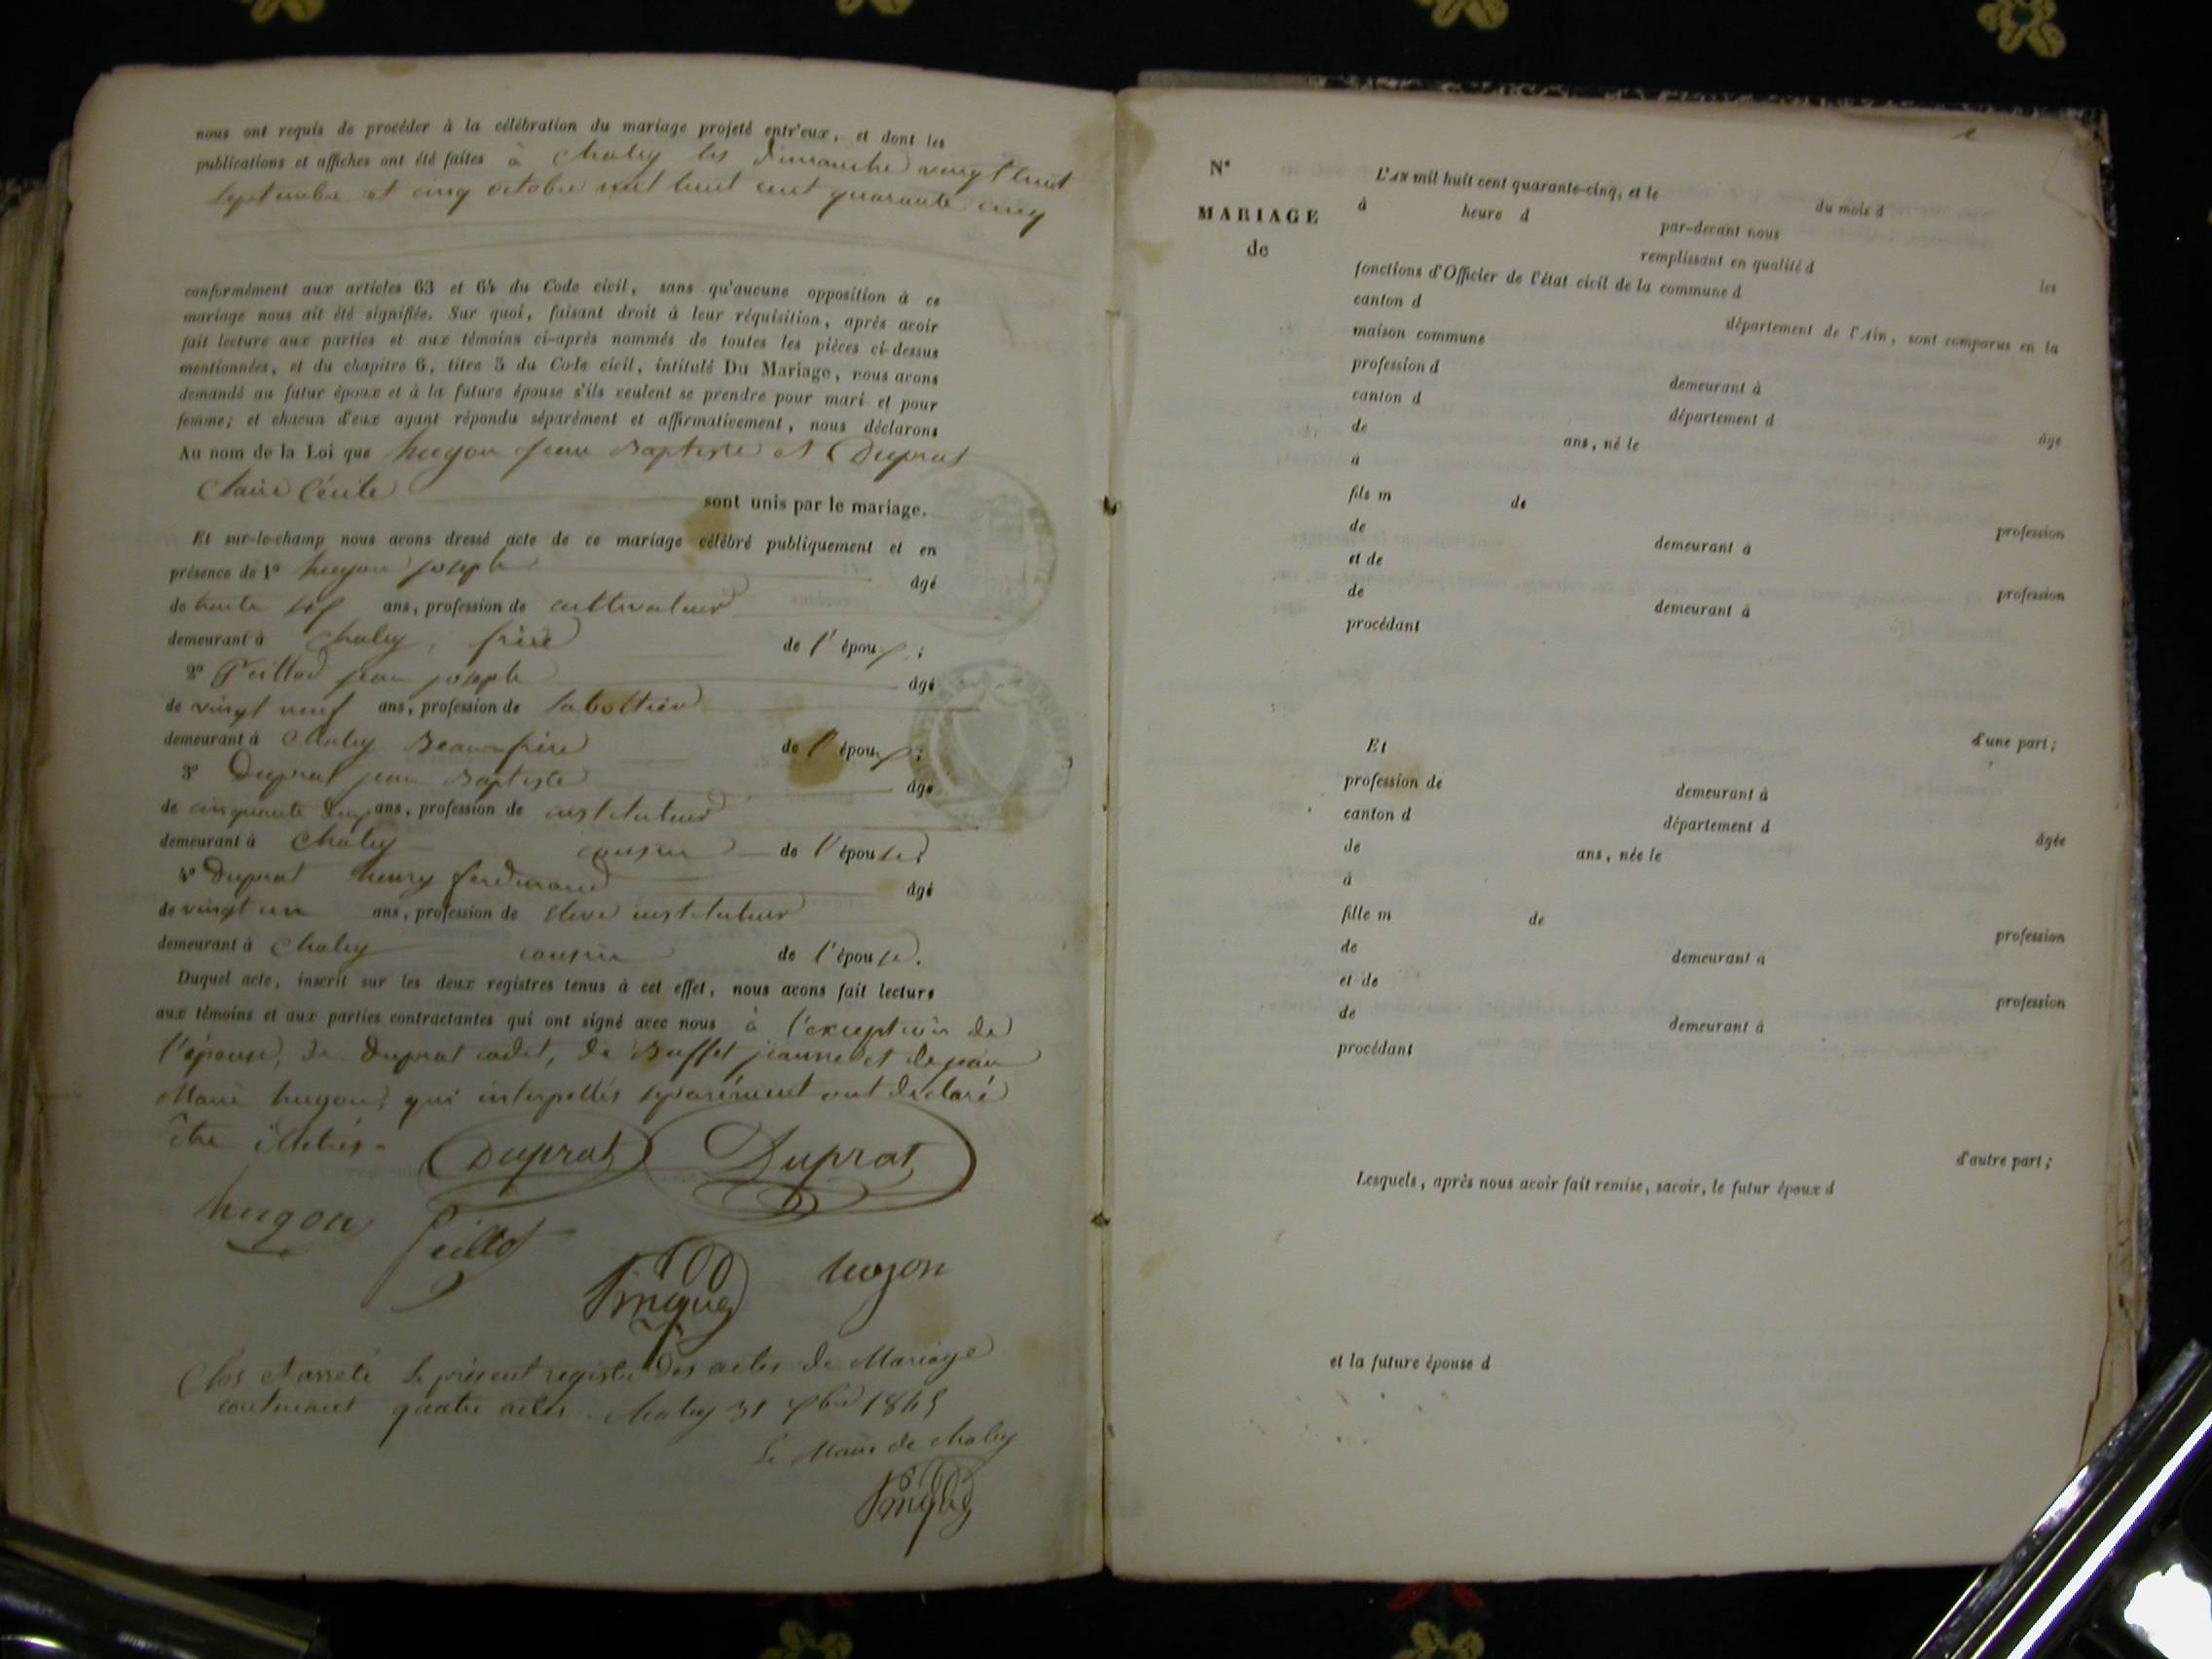 nous ont requis de procéder à la célébration du mariage projeté entr'eux, et dont les
publications et affiches ont été faites à Chaley les dimanche vingt huit
septembre et cinq octobre mil huit cent quarante cinq
conformément aux articles 63 et 64 du Code civil, sans qu'aucune opposition à ce
mariage nous ait été signifiée. Sur quoi, faisant droit à leur réquisition, après avoir
fait lecture aux parties et aux témoins ci-après nommés de toutes les pièces ci-dessus
mentionnées, et du chapitre 6, titre 5 du Code civil, intitulé Du Mariage, nous avons
demandé au futur époux et à la future épouse s'ils veulent se prendre pour mari et pour
femme; et chacun d'eux ayant répondu séparément et affirmativement, nous déclarons
Au nom de la Loi que hugon jean Baptiste et Duprat
Claire Cécile sont unis par le mariage.
Et sur-le-champ nous avons dressé acte de ce mariage célébré publiquement et en
présence de 1º hugon joseph âgé
de trente ans, profession de cultivateur
demeurant à Chaley, frère de l'époux;
2º Peillod jean joseph âgé
de vingt neuf ans, profession de sabottier
demeurant à Chaley Beau-frère de l'époux;
3º Duprat jean Baptiste âgé
de cinquante deux ans, profession de instituteur
demeurant à Chaley cousin de l'épouse;
4º Duprat henry ferdinand âgé
de vingt un ans, profession de élève instituteur
demeurant à Chaley cousin de l'épouse.
Duquel acte, inscrit sur les deux registres tenus à cet effet, nous avons fait lecture
aux témoins et aux parties contractantes qui ont signé avec nous à l'exception de
l'épouse, de Duprat cadet, de Buffet jeanne et de jean
Marie hugon, qui interpellés séparément ont déclaré
être illettrés.
Duprat Duprat
hugon Peillod
hugon
Clos et arrêté le présent registre des actes de Mariage
contenant quatre actes. Chaley 31 Xbre 1845
Le Maire de Chaley
Nº
MARIAGE
de
L'AN mil huit cent quarante-cinq, et le du mois d
à heure d par-devant nous
remplissant en qualité d les
fonctions d'Officier de l'état civil de la commune d
canton d département de l'Ain, sont comparus en la
maison commune
profession d demeurant à
canton d département d âgé
de ans, né le
à
fils m de profession
de demeurant à
et de profession
de demeurant à
procédant
d'une part;
Et
profession de demeurant à
canton d département d âgée
de ans, née le
à
fille m de profession
de demeurant à
et de profession
de demeurant à
procédant
d'autre part;
Lesquels, après nous avoir fait remise, savoir, le futur époux d
et la future épouse d